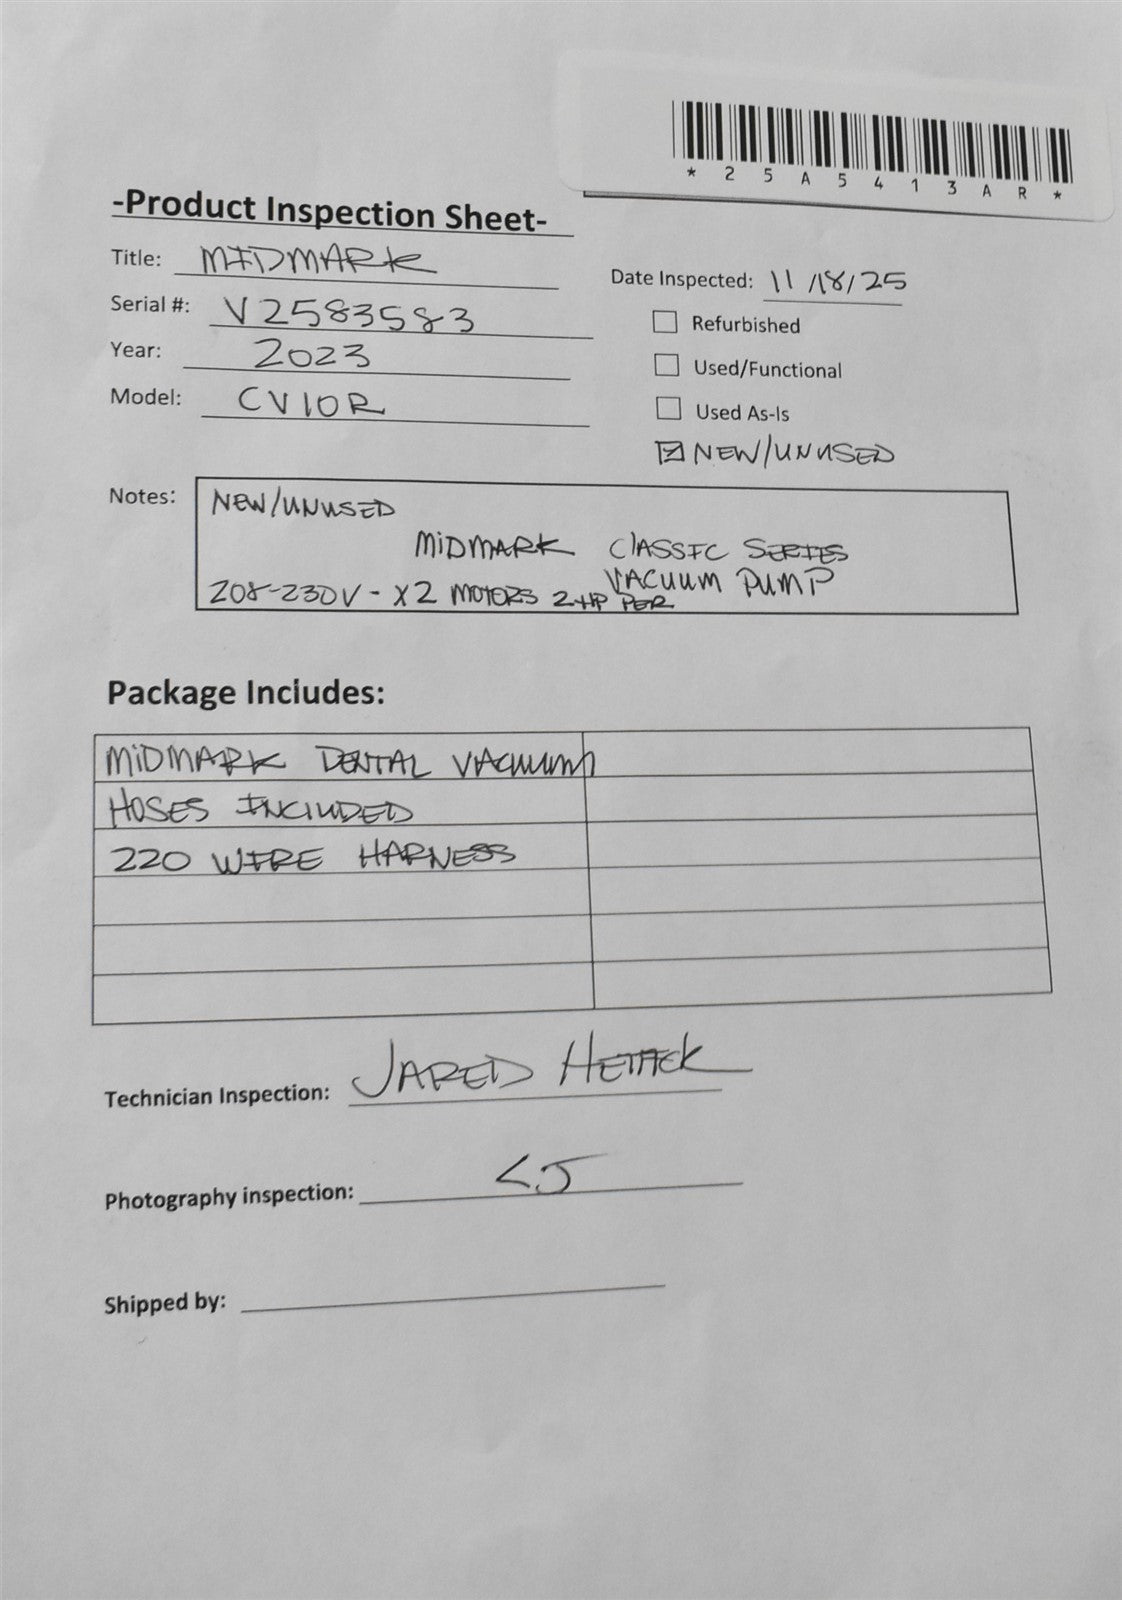 *25A5413AR*
-Product Inspection Sheet-
Title: MIDMARK
Date Inspected: 11/18/25
Serial #: V2583583
Refurbished
Year: 2023
Used/Functional
Model: CV10R
Used As-Is
NEW/UNUSED
Notes: NEW/UNUSED
MiDMARK ClASSIC SERIES
VACUUM PUMP
208-230V - X2 MOTORS 2HP PER
Package Includes:
MiDMARK DENTAL VACUUM
HOSES INClUDED
220 WIRE HARNESS
Technician Inspection: JARED
Photography inspection:
Shipped by: